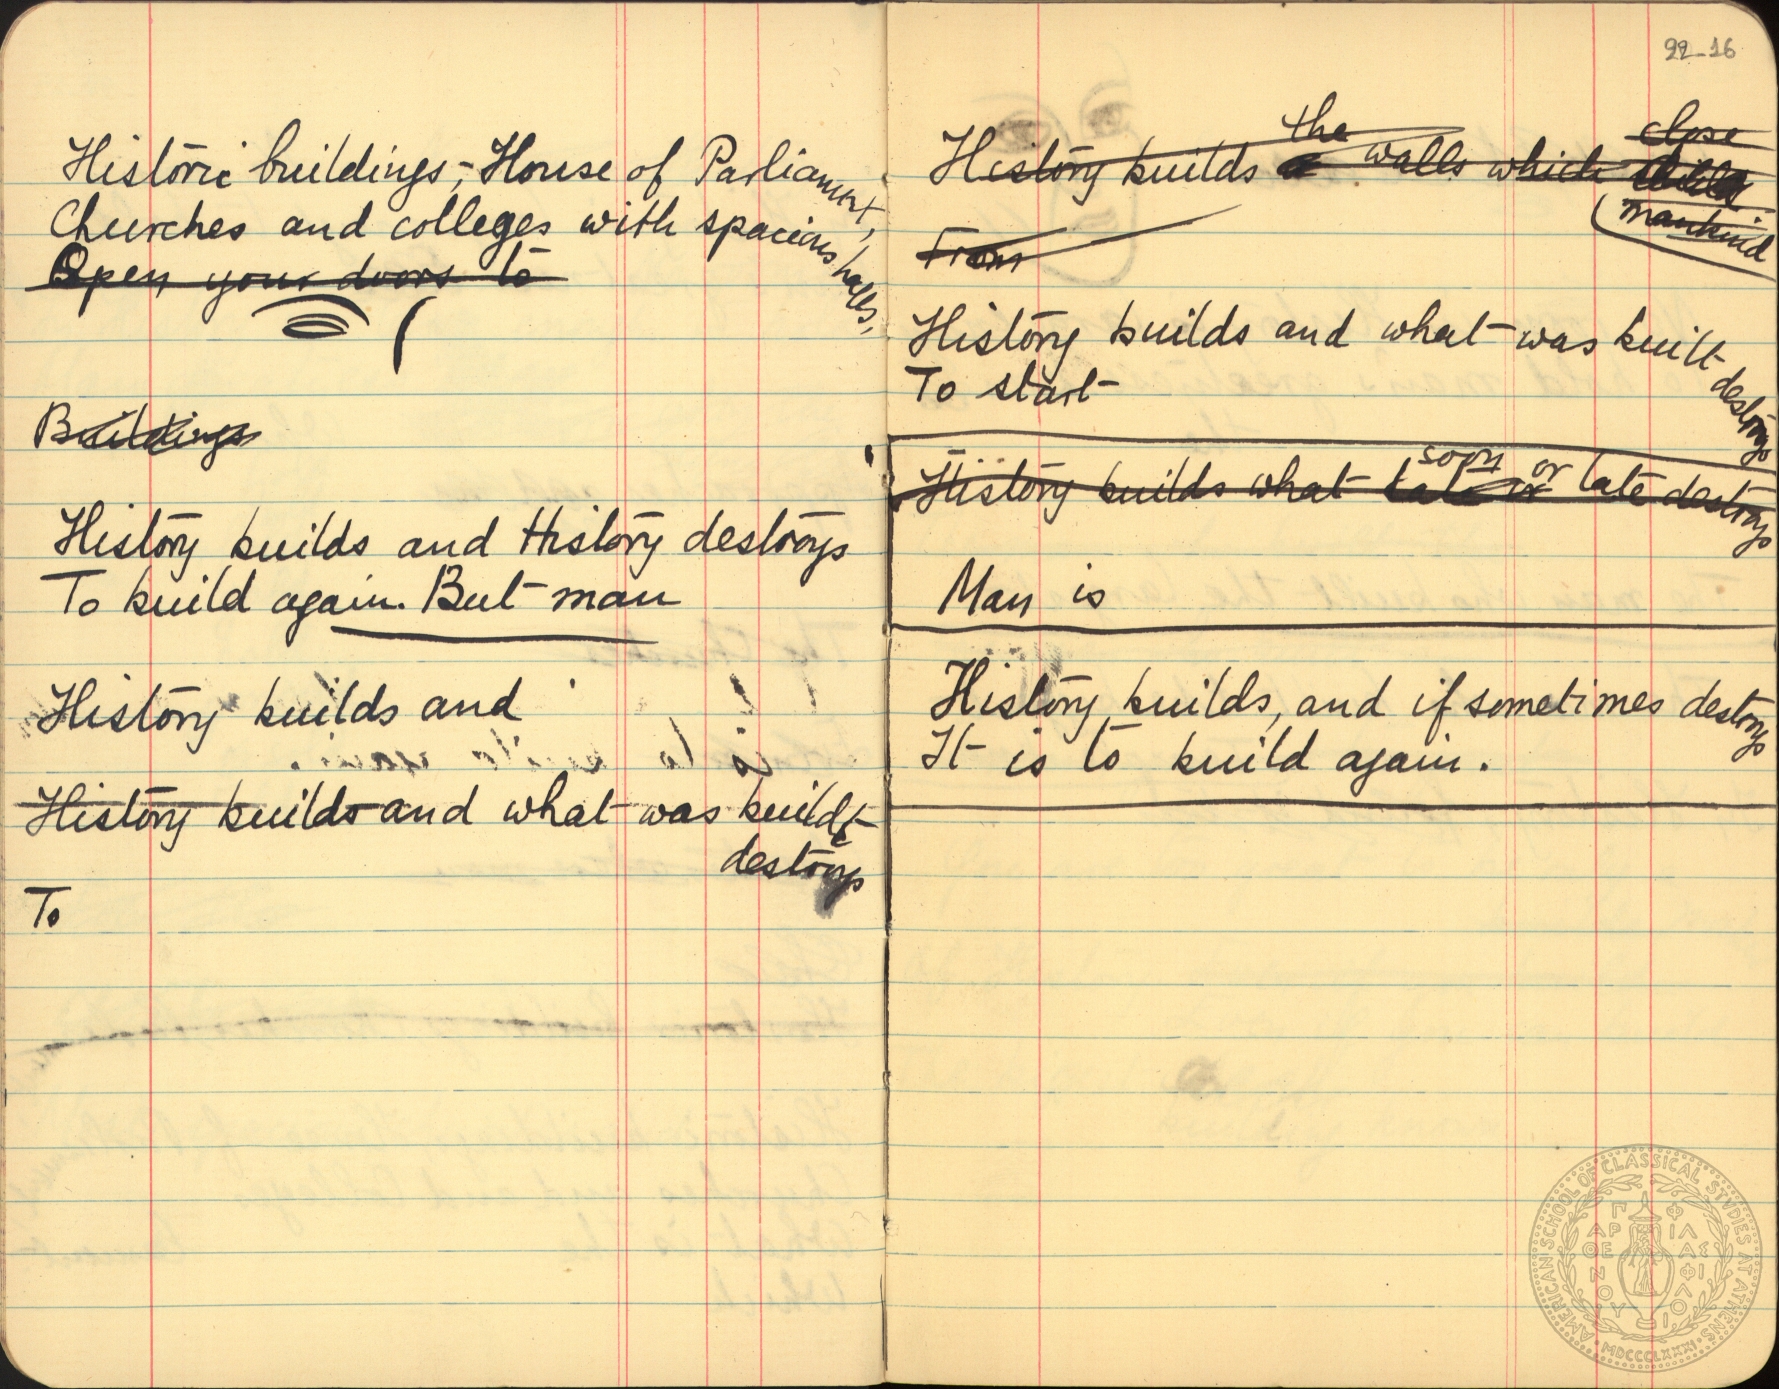 Historic buildings, House of Parliament,
Churches and colleges with spacious halls,
Open your doors to
Buildings
History builds and History destroys
To build again. But man
History builds and
History builds and what was buildt
destroys
To
22-16
the close
History builds a walls which
mankind
From
History builds and what was built destroys
To start
soon or
History builds what late or late destroys
Man is
History builds, and if sometimes destroys
It is to build again.
AMERICAN SCHOOL OF CLASSICAL STUDIES AT ATHENS
ΠΑΡΘΕΝΟΥ ΦΙΛΑΣ ΦΙΛΟΙ
MDCCCLXXXI